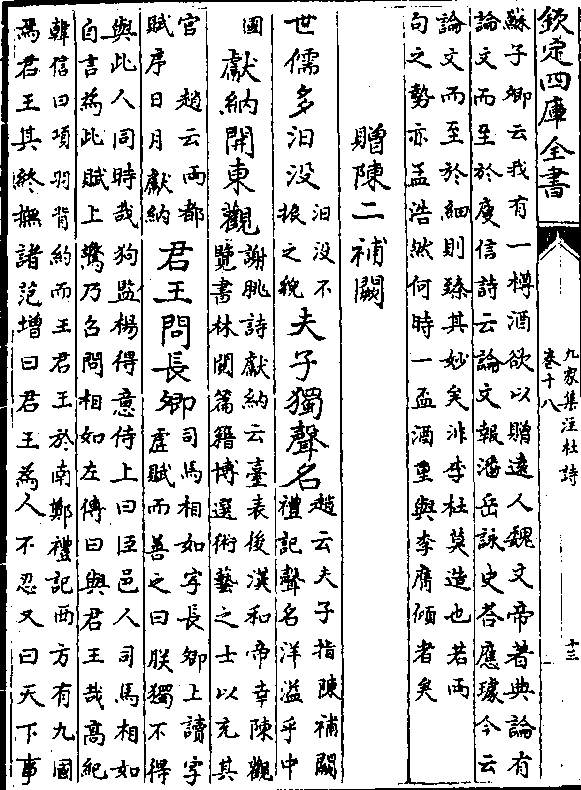 欽定四庫全書
九家集注杜詩
卷十八
十三
蘇子卿云我有一樽酒欲以贈遠人魏文帝著典論有
論文而至於庾信詩云論文報潘岳詠史荅應璩今云
論文而至於細則臻其妙矣非李杜莫造也若兩
句之勢亦孟浩然何時一盃酒重與李膺傾者矣
贈陳二補闕
世儒多汨没汨没不振之貌夫子獨聲名趙云夫子指陳補闕禮記聲名洋溢乎中
國獻納開東觀謝朓詩獻納云臺表後漢和帝幸陳觀覽書林閱篇籍博選術藝之士以充其
宮趙云兩都賦序日月獻納君王問長卿司馬相如字長卿上讀字虛賦而善之曰朕獨不得
與此人同時哉狗監楊得意侍上曰臣邑人司馬相如
自言為此賦上驚乃召問相如左傳曰與君王哉高紀
韓信曰項羽背約而王君王於南鄭禮記西方有九國
焉君王其終撫諸范增曰君王為人不忍又曰天下事